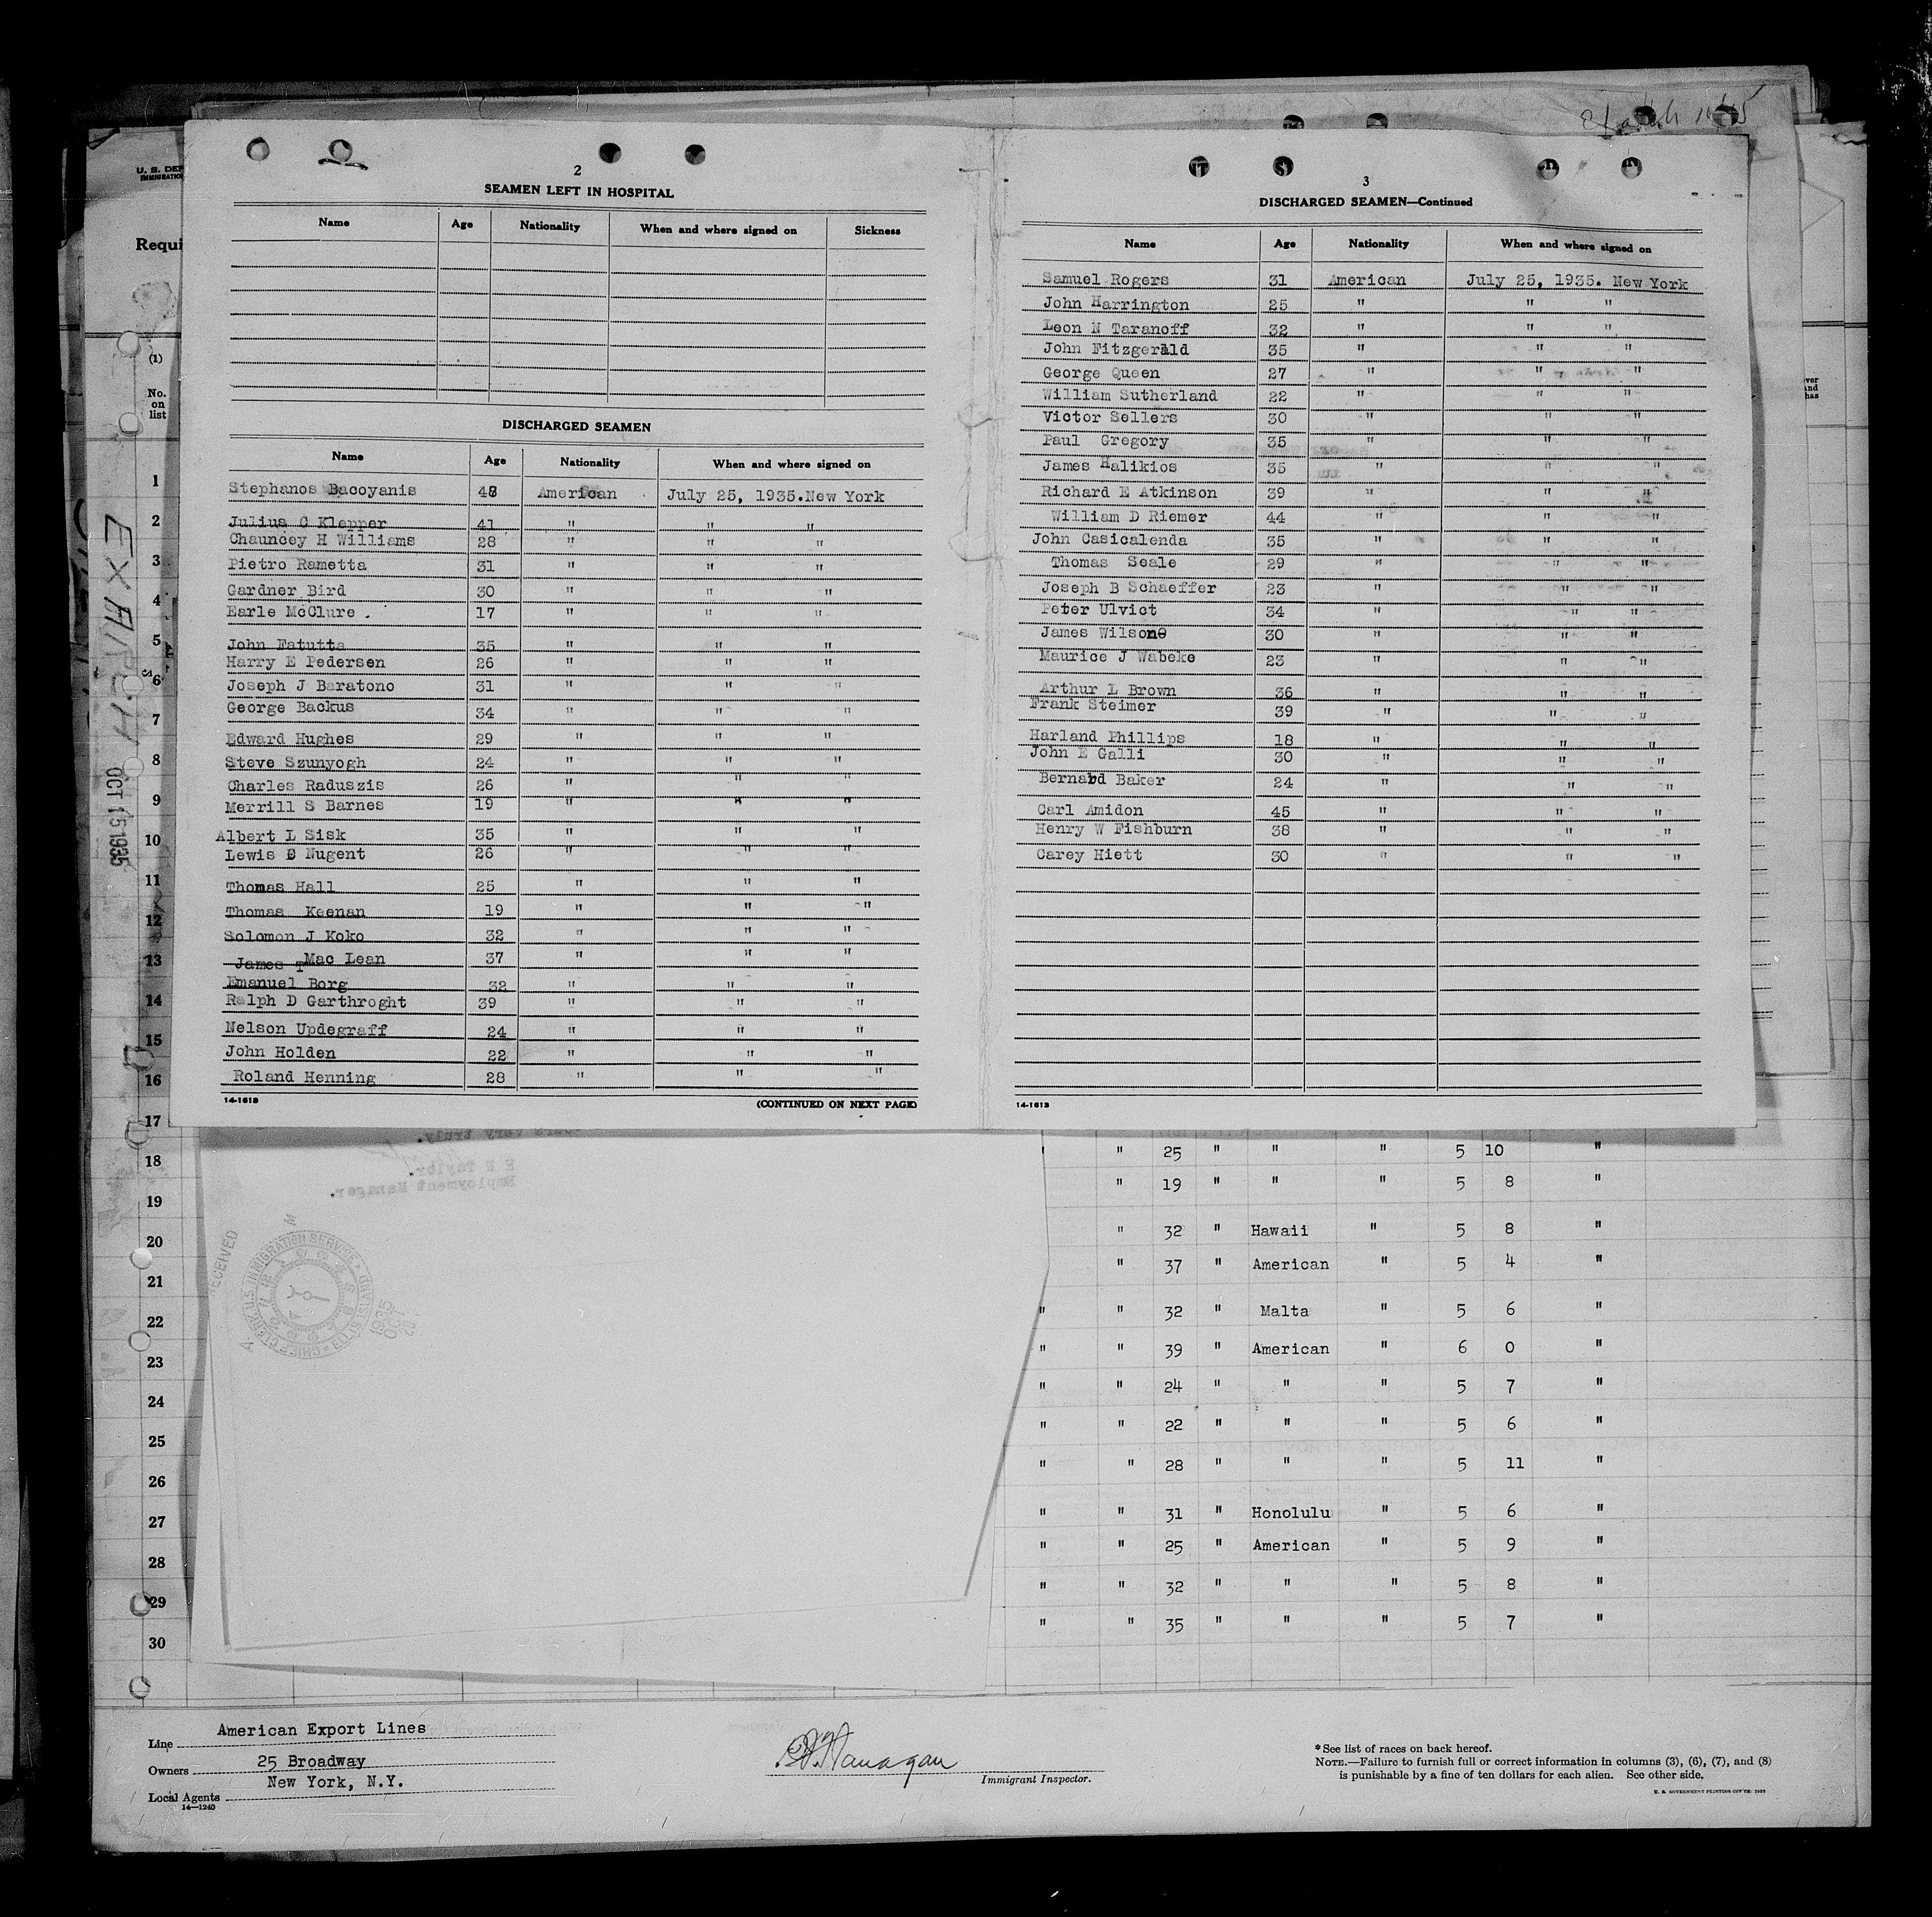 2
SEAMEN LEFT IN HOSPITAL
Name Age Nationality When and where signed on Sickness
DISCHARGED SEAMEN
Name Age Nationality When and where signed on
Stephanos Bacoyanis 48 American July 25, 1935.New York
Julius C Klepper 41 " " "
Chauncey H Williams 28 " " "
Pietro Rametta 31 " " "
Gardner Bird 30 " " "
Earle McClure . 17 " " "
John Fatutta 35 " " "
Harry E Pedersen 26 " " "
Joseph J Baratono 31 " " "
George Backus 34 " " "
Edward Hughes 29 " " "
Steve Szunyogh 24 " " "
Charles Raduszis 26 " " "
Merrill S Barnes 19 " " "
Albert L Sisk 35 " " "
Lewis E Nugent 26 " " "
Thomas Hall 25 " " "
Thomas Keenan 19 " " "
Solomon J Koko 32 " " "
James T Mac Lean 37 " " "
Emanuel Borg 32 " " "
Ralph D Garthroght 39 " " "
Nelson Updegraff 24 " " "
John Holden 22 " " "
Roland Henning 28 " " "
14-1613 (CONTINUED ON NEXT PAGE)
3
DISCHARGED SEAMEN—Continued
Name Age Nationality When and where signed on
Samuel Rogers 31 American July 25, 1935. New York
John Harrington 25 " " "
Leon N Taranoff 32 " " "
John Fitzgerald 35 " " "
George Queen 27 " " "
William Sutherland 22 " " "
Victor Sellers 30 " " "
Paul Gregory 35 " " "
James Halikios 35 " " "
Richard E Atkinson 39 " " "
William D Riemer 44 " " "
John Casicalenda 35 " " "
Thomas Seale 29 " " "
Joseph B Schaeffer 23 " " "
Peter Ulvict 34 " " "
James Wilsone 30 " " "
Maurice J Wabeke 23 " " "
Arthur L Brown 36 " " "
Frank Steimer 39 " " "
Harland Phillips 18 " " "
John E Galli 30 " " "
Bernard Baker 24 " " "
Carl Amidon 45 " " "
Henry W Fishburn 38 " " "
Carey Hiett 30 " " "
14-1613
U. S. DEP
IMMIGRATION
Requi
(1)
No.
on
list
1
2
3
4
5
6
7
8
9
10
11
12
13
14
15
16
17
18
19
20
21
22
23
24
25
26
27
28
29
30
OCT 15 1935
" " 25 " " " 5 10 "
" 19 " " " 5 8 "
" 32 " Hawaii " 5 8 "
" 37 " American " 5 4 "
" " 32 " Malta " 5 6 "
" " 39 " American " 6 0 "
" " 24 " " " 5 7 "
" " 22 " " " 5 6 "
" " 28 " " " 5 11 "
" " 31 " Honolulu " 5 6 "
" " 25 " American " 5 9 "
" " 32 " " " 5 8 "
" " 35 " " " 5 7 "
Employment Manager.
RECEIVED
U.S. IMMIGRATION SERVICE
1935
OCT
Line American Export Lines
Owners 25 Broadway
New York, N.Y.
Local Agents
14—1240
Immigrant Inspector.
*See list of races on back hereof.
NOTE.—Failure to furnish full or correct information in columns (3), (6), (7), and (8)
is punishable by a fine of ten dollars for each alien. See other side.